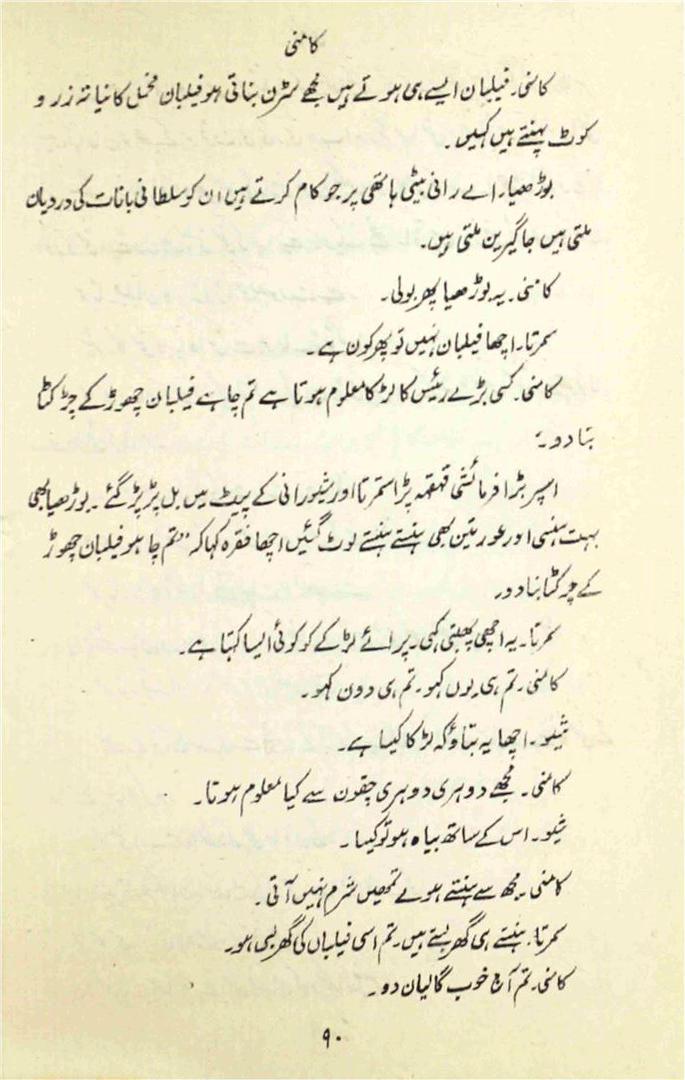 کامنی
کامنی۔ فیلبان ایسے ہی ہوتے ہیں مجھے سڑن بناتی ہو فیلبان مخمل کا نیانہ زر و
کوٹ پہنتے ہیں کہیں۔
بوڑھیا۔ اے رانی بیٹی ہاتھی پر جو کام کرتے ہیں ان کو سلطانی بانات کی وردیان
ملتی ہیں جاگیرین ملتی ہیں۔
کامنی۔ یہ بوڑھیا پھر بولی۔
سمرتا۔ اچھا فیلبان نہیں تو پھر کون ہے۔
کامنی۔ کسی بڑے رئیس کا لڑکا معلوم ہوتا ہے تم چاہے فیلبان چھوڑ کے چڑکٹا
بنا دو۔
اسپر بڑا فرمائشی قہقہہ پڑا سمرتا اور شیورانی کے پیٹ میں بل پڑ پڑ گئے۔ بوڑھیا بھی
بہت ہنسی اور عورتین بھی ہنستے ہنستے لوٹ گئیں اچھا فقرہ کہا کہ ”تم چاہو فیلبان چھوڑ
کے چرکٹا بنا دو۔
سمرتا۔ یہ اچھی پھبتی کہی۔ پرائے لڑکے کو کوئی ایسا کہتا ہے۔
کامنی۔ تم ہی یوں کہو۔ تم ہی دون کہو۔
شیو۔ اچھا یہ بتاؤ کہ لڑکا کیسا ہے۔
کامنی۔ مجھے دوہری دوہری چقون سے کیا معلوم ہوتا۔
شیو۔ اس کے ساتھ بیاہ ہو تو کیسا۔
کامنی۔ مجھ سے ہنستے ہوے تمھیں شرم نہیں آتی۔
سمرتا۔ ہنستے ہی گھر بستے ہیں۔ تم اسی فیلباں کی گھر بسی ہو۔
کامنی۔ تم آج خوب گالیان دو۔
۹۰